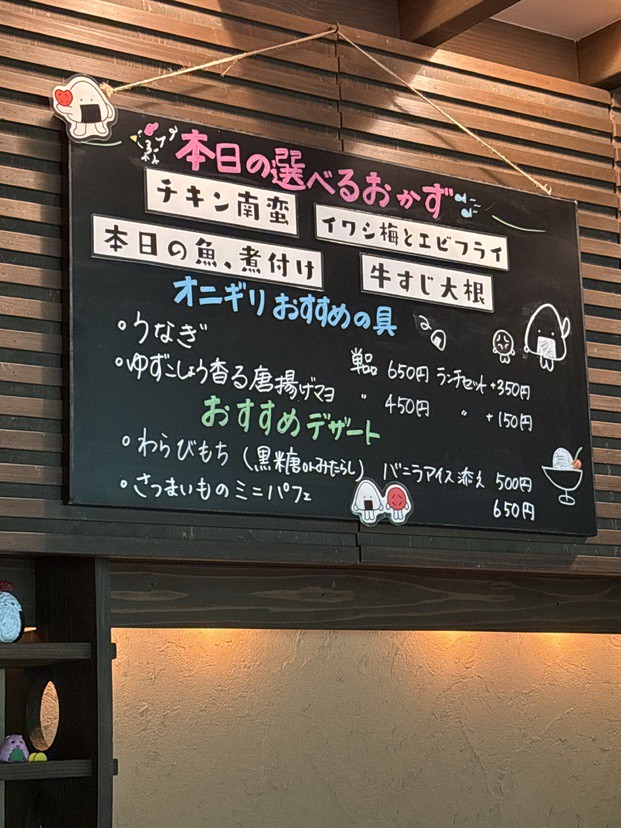 本日の選べるおかず
チキン南蛮
イワシ梅とエビフライ
本日の魚、煮付け
牛すじ大根
オニギリおすすめの具
・うなぎ 単品 650円 ランチセット+350円
・ゆずこしょう香る唐揚げマヨ 〃 450円 〃 +150円
おすすめデザート
・わらびもち (黒糖orみたらし) バニラアイス添え 500円
・さつまいものミニパフェ 650円